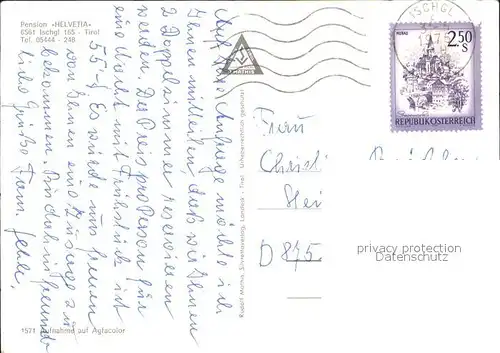 Pension «HELVETIA»
6561 Ischgl 165 - Tirol
Tel. 05444 - 248
Auf Ihre Anfrage möcht ich
Ihnen mitteilen daß wir Ihnen
2 Doppelzimmer reservieren
werden. Der Preis pro Person für
eine Nacht mit Frühstück ist
55.-S Es würde uns freuen
von Ihnen eine Zusage zu
bekommen. Bis dahin freundl
liche Grüße Fam.
1571 Aufnahme auf Agfacolor
Rudolf Mathis, Silvrettaverlag, Landeck - Tirol Urheberrechtlich geschützt
ISCHGL
MURAU
2.50
S
REPUBLIK ÖSTERREICH
Frau
D 875
privacy protection
Datenschutz